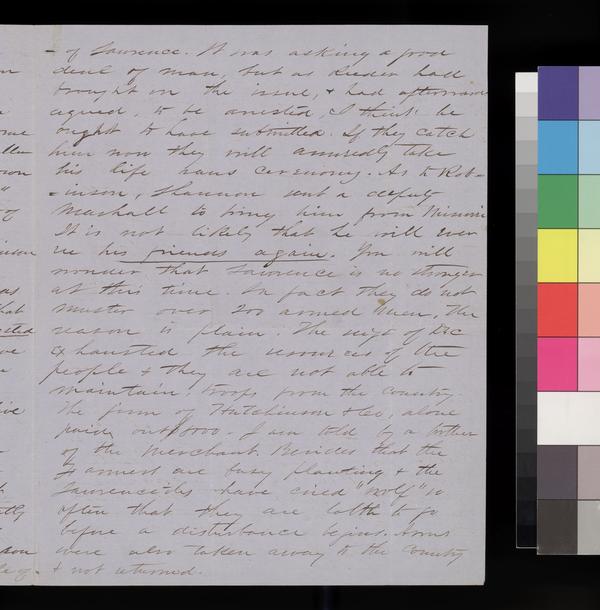 - of Lawrence. It was asking a good
deal of man, but as Reeder had
brought on the issue, & had afterwards
agreed, to be arrested, I think he
ought to have submitted. If they catch
him now they will assuredly take
his life sans ceremony. As to Rob-
-inson, Shannon sent a deputy
Marshall to bring him from Missouri
It is not likely that he will ever
see his friends again. You will
wonder that Lawrence is no stronger
at this time. In fact they do not
muster over 200 armed men, the
reason is plain. The siege of Dec
exhausted the resources of the
people & they are not able to
maintain, troops from the country.
The firm of Hutchinson & Co, alone
paid out I am told by a brother
of the merchant. Besides that the
Farmers are busy planting & the
Lawrenceites have cried "wolf" so
often that they are loth to go
before a disturbance begins. Arms
were also taken away to the country
& not returned.